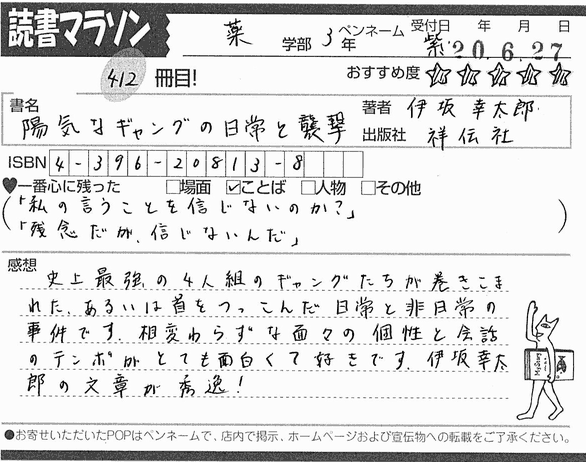 読書マラソン
薬 学部 3年 ペンネーム 紫
受付日 年 月 日
20.6.27
412 冊目!
おすすめ度 ☆☆☆☆☆
書名 陽気なギャングの日常と襲撃
著者 伊坂幸太郎
出版社 祥伝社
ISBN 4-396-20813-8
♥一番心に残った □場面 ☑ことば □人物 □その他
「私の言うことを信じないのか?」
「残念だが、信じないんだ」
感想
史上最強の4人組のギャングたちが巻きこま
れた、あるいは首をつっこんだ日常と非日常の
事件です。相変わらずな面々の個性と会話
のテンポがとても面白くて好きです。伊坂幸太
郎の文章が秀逸!
●お寄せいただいたPOPはペンネームで、店内で掲示、ホームページおよび宣伝物への転載をご了承ください。